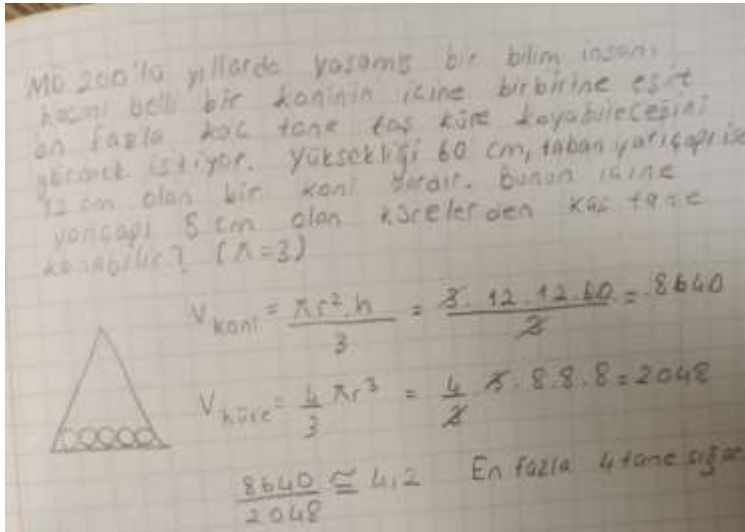 MÖ 200'lü yıllarda yaşamış bir bilim insanı
hacmi belli bir koninin içine birbirine eşit
en fazla kaç tane taş küre koyabileceğini
görmek istiyor. Yüksekliği 60 cm, taban yarıçapı ise
12 cm olan bir koni vardır. Bunun içine
yarıçapı 8 cm olan kürelerden kaç tane
konabilir? (π=3)
V koni = πr².h / 3 = 3.12.12.60 / 3 = 8640
V küre = 4/3 πr³ = 4/3 . 3.8.8.8 = 2048
8640 / 2048 ≅ 4,2 En fazla 4 tane sığar